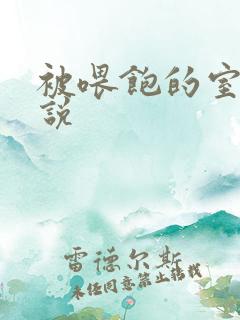 被喂飽的室
說
雷德尔斯
未经同意禁止转载